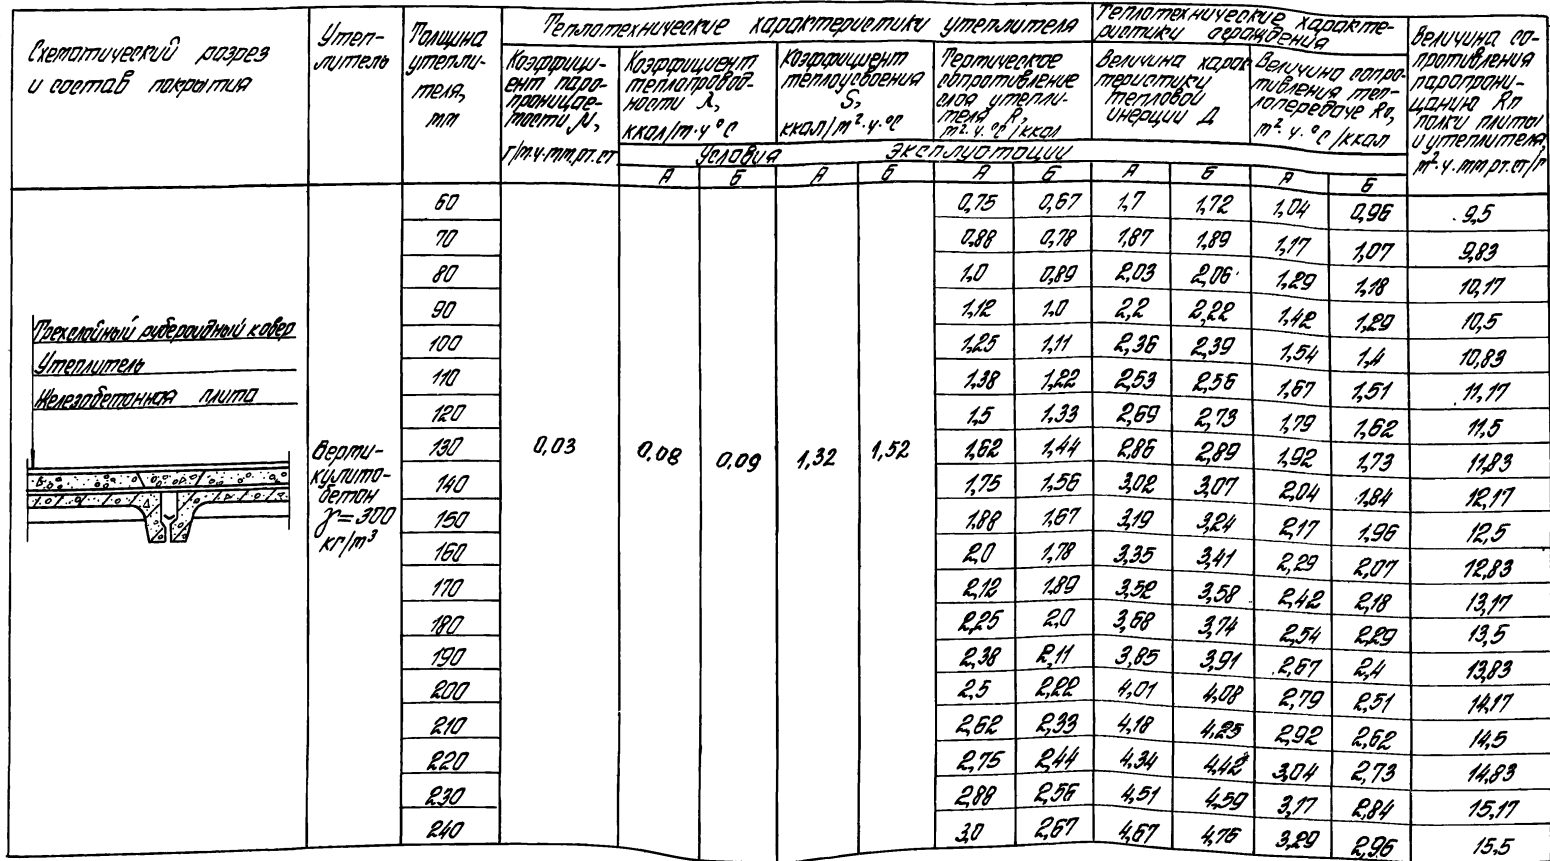 Схематический разрез
и состав покрытия
Утеп-
литель
Толщина
утепли-
теля,
мм
Теплотехнические характеристики утеплителя
Теплотехнические характе-
ристики ограждения
Коэффици-
ент паро-
проницае-
мости μ,
г/м·ч·мм.рт.ст
Коэффициент
теплопровод-
ности λ,
ккал/м·ч°С
Коэффициент
теплоусвоения
S,
ккал/м²·ч·°С
Термическое
сопротивление
слоя утепли-
теля R,
м²·ч·°С/ккал
Величина харак
теристики
тепловой
инерции Д
Величина сопро-
тивления теп-
лопередаче Rо,
м²·ч·°С/ккал
Величина со-
противления
паропрони-
цанию Rп
полки плиты
и утеплителя,
м²·ч·мм рт.ст/г
Условия эксплуатации
А Б А Б А Б А Б А Б
Трехслойный рубероидный ковер
Утеплитель
Железобетонная плита
Верми-
кулито-
бетон
γ=300
кг/м³
0,03 0,08 0,09 1,32 1,52
60 0,75 0,67 1,7 1,72 1,04 0,96 9,5
70 0,88 0,78 1,87 1,89 1,17 1,07 9,83
80 1,0 0,89 2,03 2,06 1,29 1,18 10,17
90 1,12 1,0 2,2 2,22 1,42 1,29 10,5
100 1,25 1,11 2,36 2,39 1,54 1,4 10,83
110 1,38 1,22 2,53 2,56 1,67 1,51 11,17
120 1,5 1,33 2,69 2,73 1,79 1,62 11,5
130 1,62 1,44 2,86 2,89 1,92 1,73 11,83
140 1,75 1,56 3,02 3,07 2,04 1,84 12,17
150 1,88 1,67 3,19 3,24 2,17 1,96 12,5
160 2,0 1,78 3,35 3,41 2,29 2,07 12,83
170 2,12 1,89 3,52 3,58 2,42 2,18 13,17
180 2,25 2,0 3,68 3,74 2,54 2,29 13,5
190 2,38 2,11 3,85 3,91 2,67 2,4 13,83
200 2,5 2,22 4,01 4,08 2,79 2,51 14,17
210 2,62 2,33 4,18 4,25 2,92 2,62 14,5
220 2,75 2,44 4,34 4,42 3,04 2,73 14,83
230 2,88 2,56 4,51 4,59 3,17 2,84 15,17
240 3,0 2,67 4,67 4,76 3,29 2,96 15,5